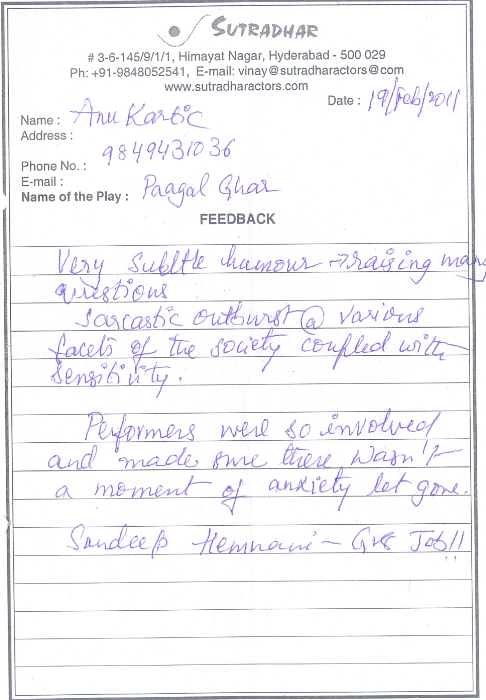 SUTRADHAR
# 3-6-145/9/1/1, Himayat Nagar, Hyderabad - 500 029
Ph: +91-9848052541, E-mail: vinay@sutradharactors@com
www.sutradharactors.com
Date : 19/Feb/2011
Name : Anu Kartic
Address :
9849431036
Phone No. :
E-mail :
Name of the Play : Paagal Ghar
FEEDBACK
Very subltle humour → raising many
questions
Sarcastic outburst @ various
facets of the society coupled with
sensitivity.
Performers were so involved
and made sure there wasn't
a moment of anxiety let gone.
Sandeep Hemnani - Job!!